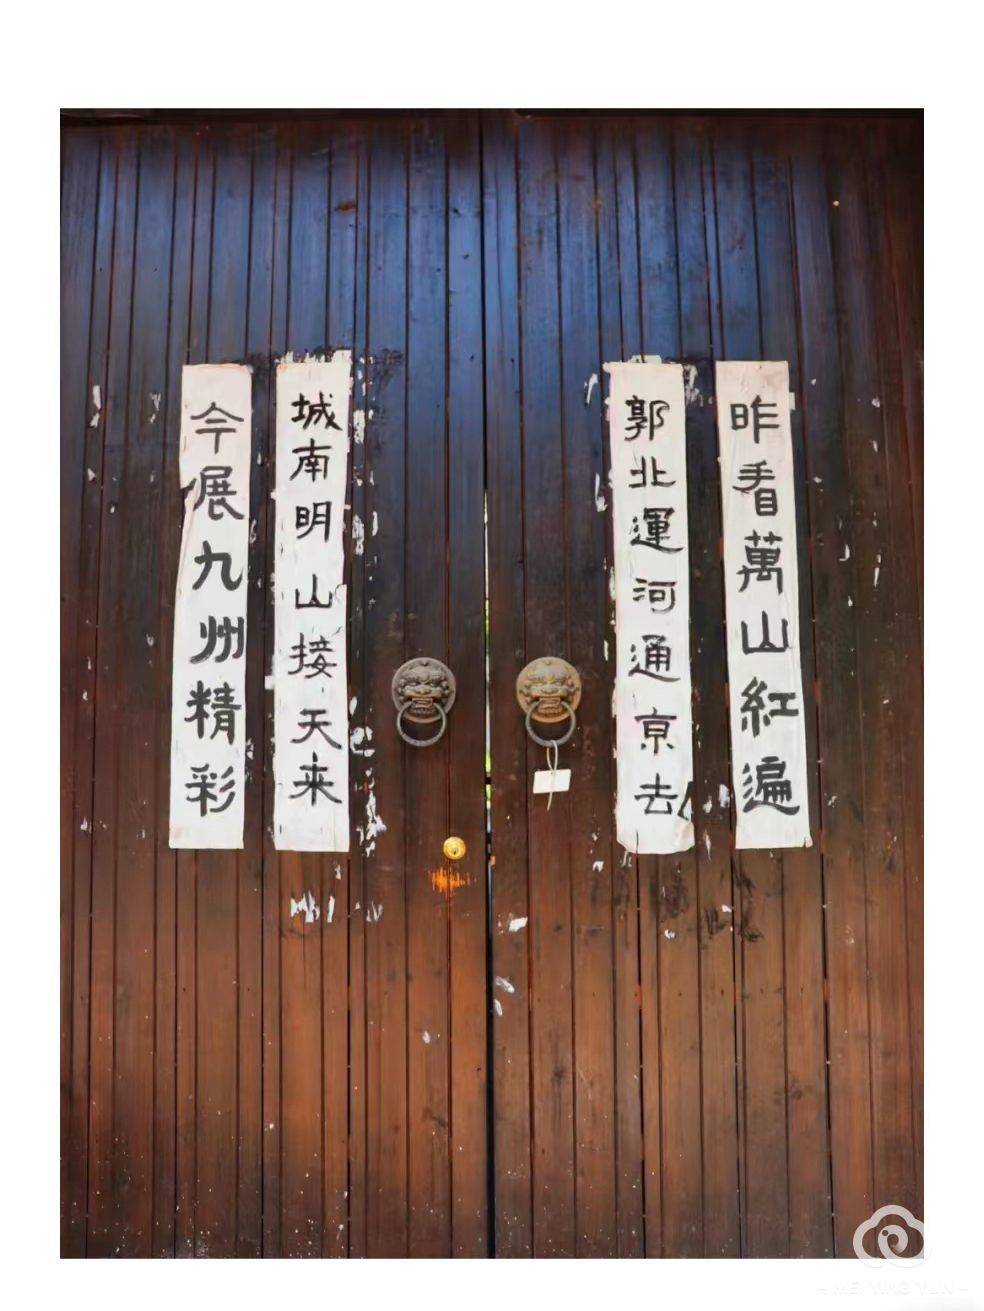 昨看萬山紅遍
郭北運河通京去
城南明山接天来
今展九州精彩
MEI YING YUN